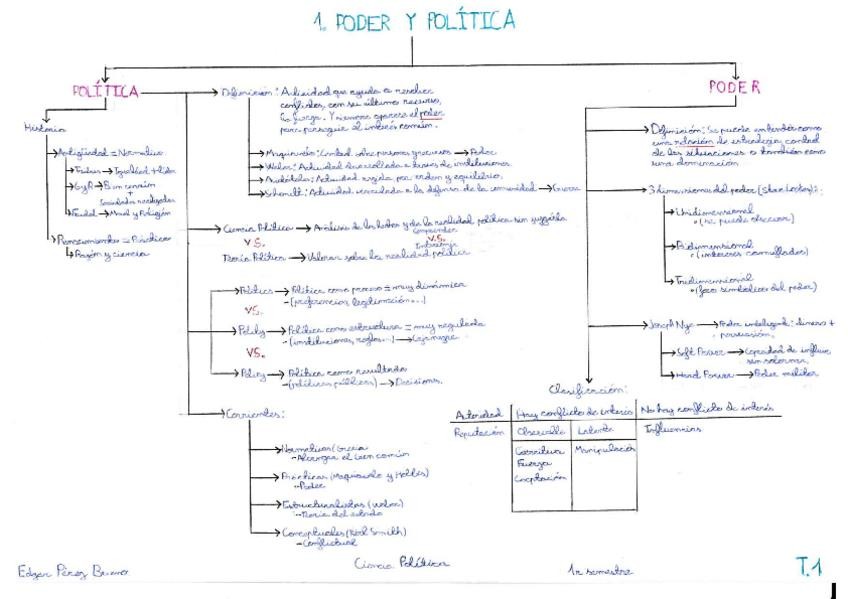 1. PODER Y POLÍTICA
POLÍTICA
Historia
Antigüedad = Normativo
Tribus → Igualdad + líder
GyR → Bien común
+
Feudal → Moral y Religión
Renacimiento = Prácticas
Razón y ciencia
Definición: Actividad que ayuda a resolver
conflictos, con su último recurso,
la fuerza. Y siempre aparece el poder
para perseguir el interés común.
Maquiavelo: Control sobre personas y recursos → Poder
Weber: Actividad desarrollada a través de instituciones.
Aristóteles: Actividad regida por orden y equilibrio.
Schmitt: Actividad vinculada a la defensa de la comunidad → Guerra
Ciencia Política → Análisis de los hechos y de la realidad política sin juzgarla
Comprender
VS.
VS.
Teoría Política → Valorar sobre la realidad política
Politics → Política como proceso = muy dinámica
-(preferencias, legitimación...)
VS.
Polity → Política como estructura = muy regulada
-(instituciones, reglas...)
VS.
Policy → Política como resultado
-(políticas públicas) → Decisions.
Corrientes:
Normativas (Grecia
el bien común
Prácticas (Maquiavelo y Hobbes)
-Poder
Estructuralistas (Weber)
-Teoría del estado
Conceptuales (Karl Smith)
-Conflictual
PODER
Definición: Se puede entender como
una relación de estrategia, control
de las situaciones o también como
una dominación.
3 dimensiones del poder (Steven Lukes):
Unidimensional
·(se puede observar)
Bidimensional
·(intereses camuflados)
Tridimensional
·(foco simbólico del poder)
Joseph Nye → Poder inteligente: dinero +
persuasión.
Soft Power → Capacidad de influir
sin
Hard Power → Poder militar
Clasificación:
Autoridad | Hay conflicto de interés | No hay conflicto de interés
Reputación | Observable | Latente | Influencias
Coercitiva | Manipulación
Fuerza
Coaptación
Edgar Pérez Bueno
Ciencia Política
1r semestre
T.1